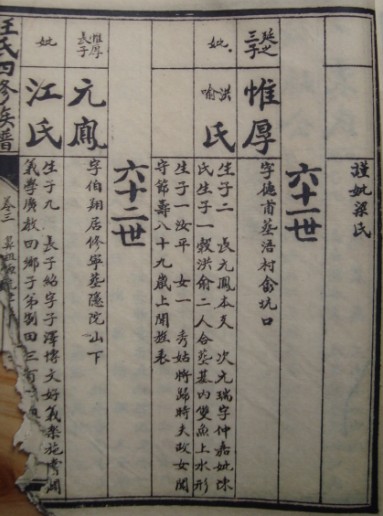 謹妣梁氏
六十一世
延世三子
惟厚
字德甫墓浯村畲坑口
妣 洪喻氏
生子二 長元鳳本久 次元瑞字仲嘉妣
氏生子一穀洪俞二人合墓基内雙魚上水形
生子一汝平 女一 秀姑將歸時夫故女聞
守節壽八十九歲上聞旌表
六十二世
惟厚長子
元鳳
字伯翔居修寧墓隱院山下
妣
江氏
生子九 長子紹字子澤博文好義樂施
義學廣教四鄉子弟割田三百
王氏四修族譜
卷三